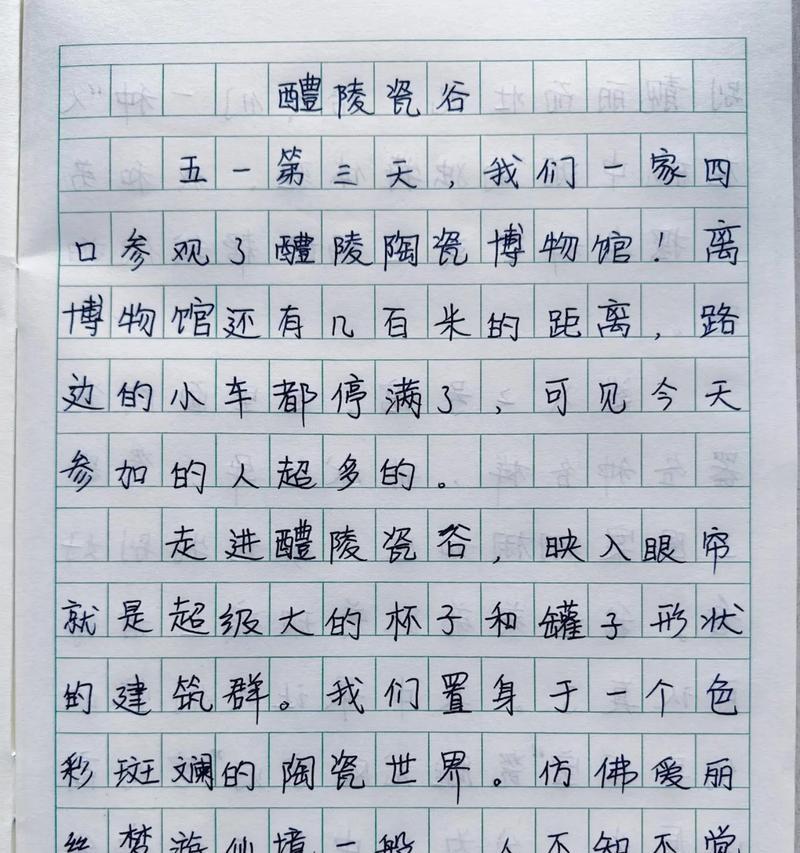 醴陵瓷谷
五一第三天，我们一家四
口参观了醴陵陶瓷博物馆！离
博物馆还有几百米的距离，路
边的小车都停满了，可见今天
参加的人超多的。
走进醴陵瓷谷，映入眼帘
就是超级大的杯子和罐子形状
的建筑群。我们置身于一个色
彩斑斓的陶瓷世界。仿佛爱丽
丝梦游仙境一般，人不知不觉